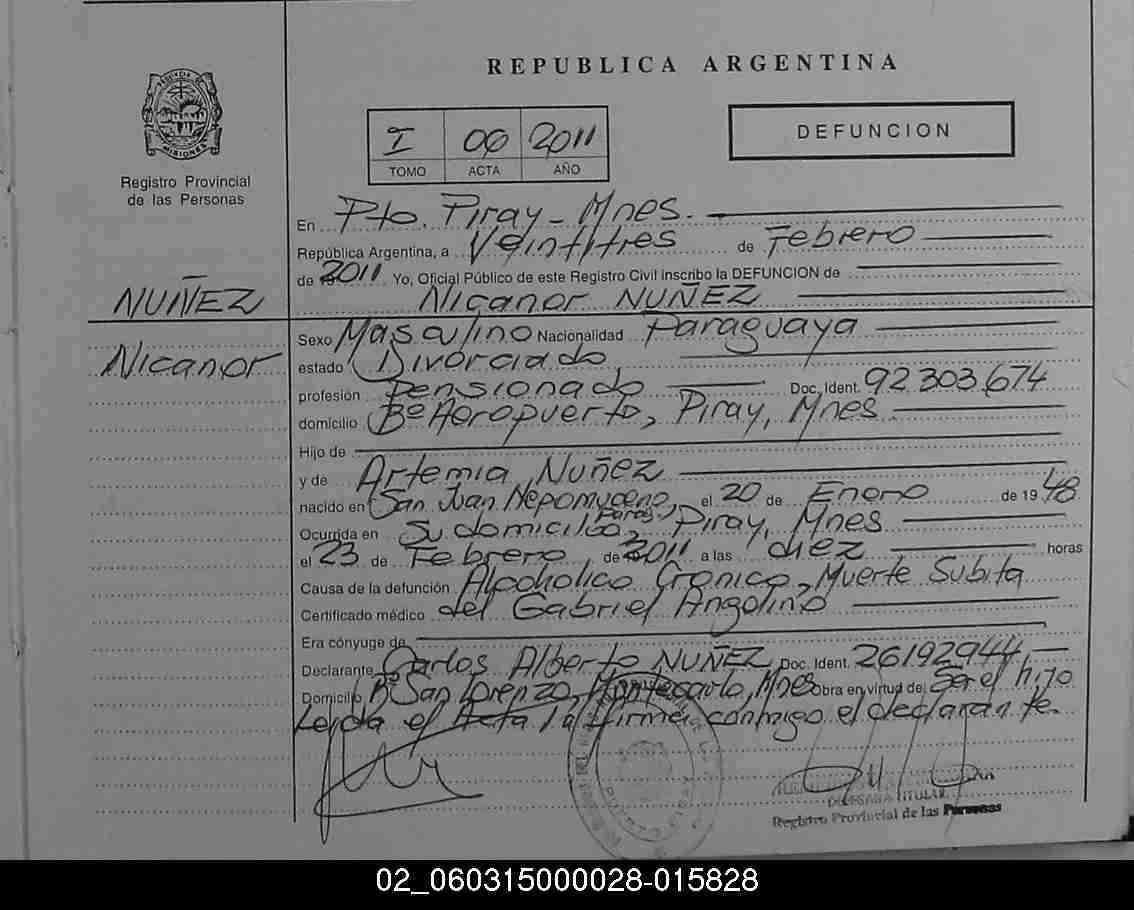 REPUBLICA ARGENTINA
PROVINCIA DE
MISIONES
Registro Provincial
de las Personas
I 06 2011
TOMO ACTA AÑO
DEFUNCION
En Pto. Piray - Mnes.
República Argentina, a Veintitres de Febrero
de 2011 Yo, Oficial Público de este Registro Civil inscribo la DEFUNCION de
NUÑEZ
Nicanor NUÑEZ
Nicanor
Sexo Masculino Nacionalidad Paraguaya
estado Divorciado
profesión Pensionado Doc. Ident. 92 303.674
domicilio Bº Aeropuerto, Piray, Mnes
Hijo de
y de Artemia Nuñez
nacido en San Juan Nepomuceno, Parag. el 20 de Enero de 19 48
Ocurrida en Su domicilio, Piray, Mnes
el 23 de Febrero de 2011 a las diez horas
Causa de la defunción Alcoholico Cronico, Muerte Subita
Certificado médico del Gabriel Angolino
Era cónyuge de
Declarante Carlos Alberto NUÑEZ Doc. Ident. 26192944
Domicilio Bº San Lorenzo, Montecarlo, Mnes Obra en virtud de Ser el hijo
Leida el Acta la firma conmigo el declarante.
DELEGADA TITULAR
Registro Provincial de las Personas
02_060315000028-015828